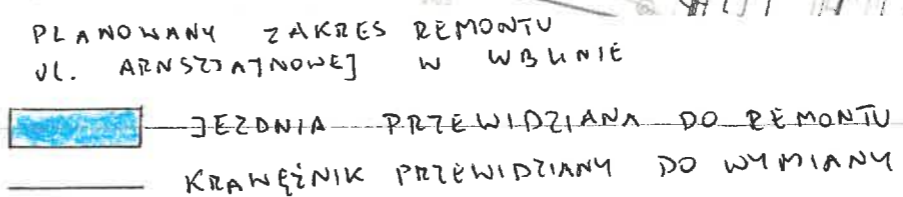 PLANOWANY ZAKRES REMONTU
UL. ARNSZTAJNOWEJ W LUBLINIE
JEZDNIA PRZEWIDZIANA DO REMONTU
KRAWĘŻNIK PRZEWIDZIANY DO WYMIANY